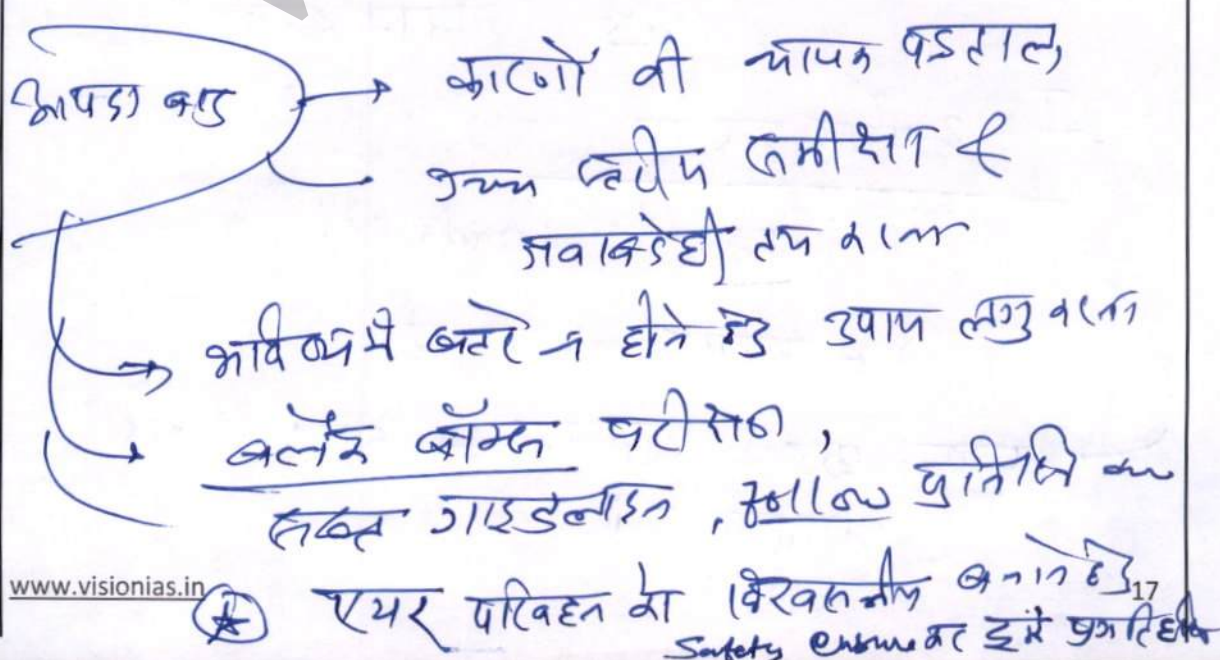 आपदा बाद → कारणों की व्यापक पड़ताल,
उच्च स्तरीय समीक्षा से
जवाबदेही तय करना
→ भविष्य में खतरे न होने हेतु उपाय लागू करना
→ ब्लैक बॉक्स परीक्षण,
सख्त गाइडलाइन,
www.visionias.in
* एयर परिवहन को विश्वसनीय बनाने हेतु
17
Safety ensure कर इसे